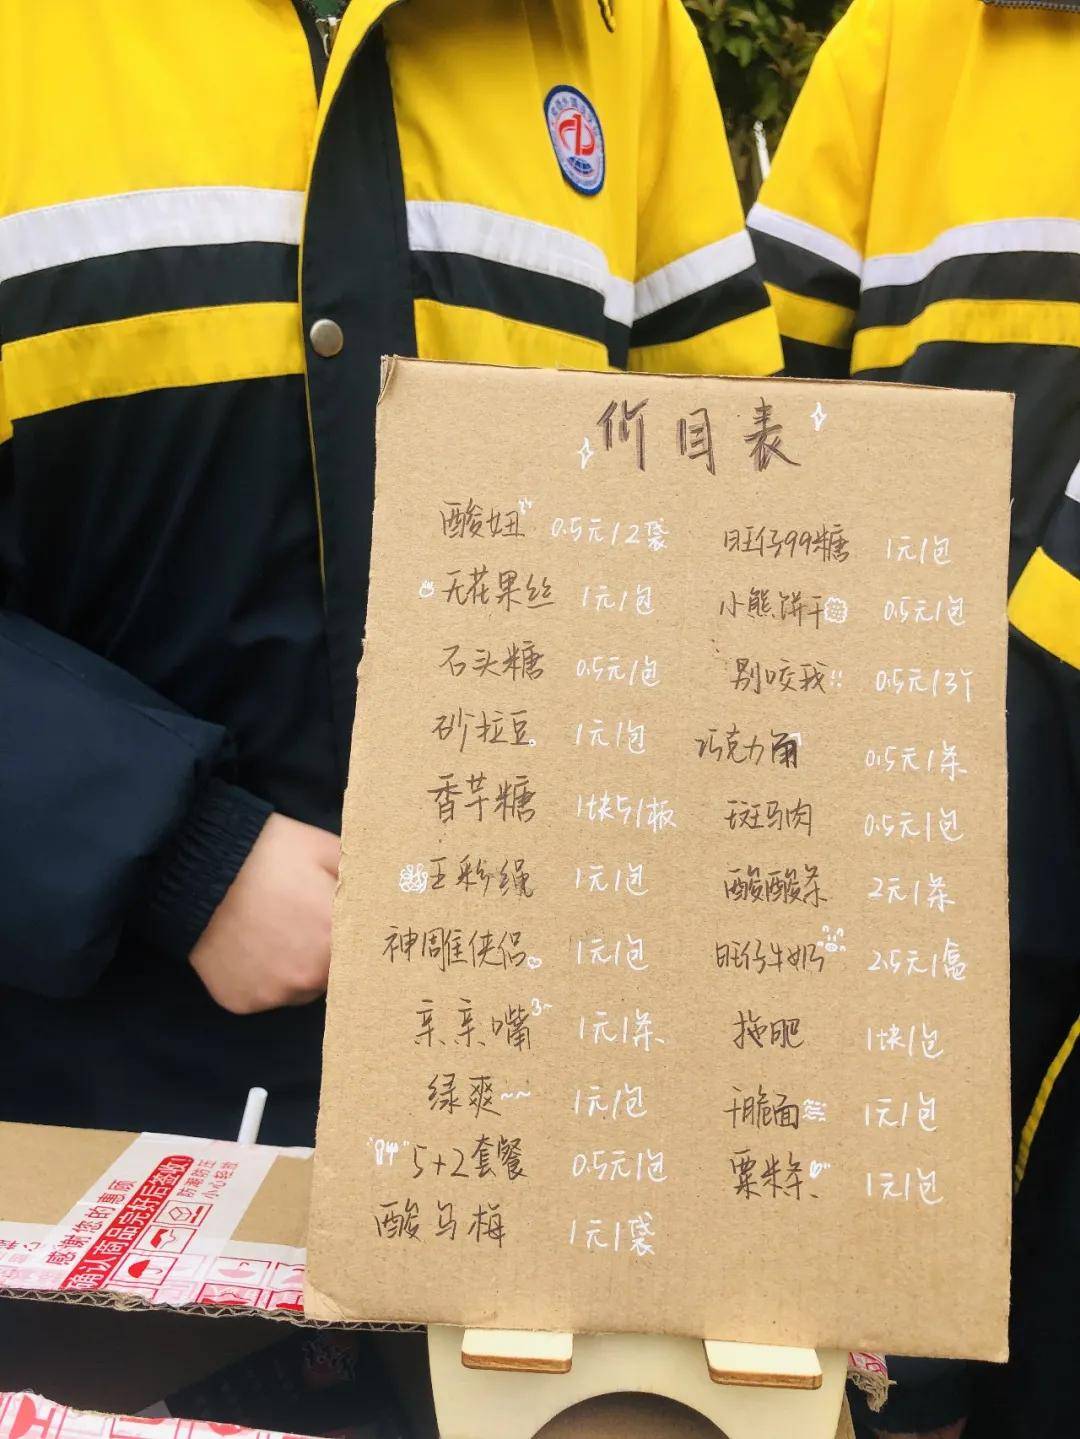 价目表
酸妞 0.5元/2袋
无花果丝 1元/包
石头糖 0.5元/包
砂拉豆 1元/包
香芋糖 1块5/板
王彩绳 1元/包
神雕侠侣 1元/包
亲亲嘴 1元/条
绿爽~~ 1元/包
5+2套餐 0.5元/包
酸乌梅 1元/袋
旺仔99糖 1元/包
小熊饼干 0.5元/包
别咬我!! 0.5元/3个
巧克力 0.5元/条
斑马肉 0.5元/包
酸酸条 2元/条
旺仔牛奶 2.5元/盒
拖肥 1块/包
干脆面 1元/包
粟米条 1元/包
感谢您的惠顾
确认商品完好后签收!
防潮防压
小心轻放